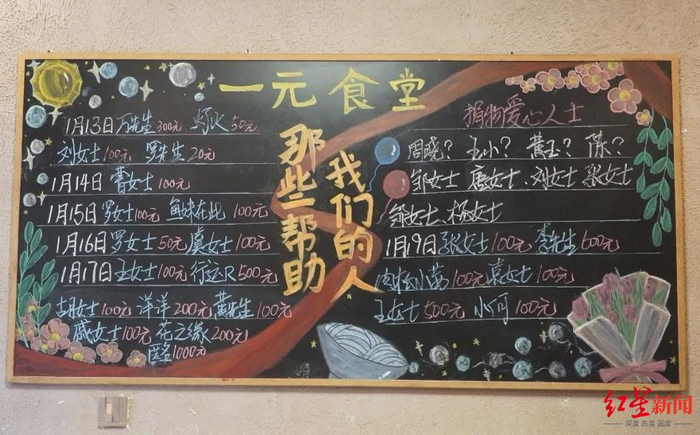 一元食堂
那些帮助
我们的人
1月13日万先生300元 50元
刘女士100元 罗先生20元
1月14日曹女士100元
1月15日罗女士100元 鱼妹在此 100元
1月16日罗女士50元 虞女士100元
1月17日王女士100元 行运R500元
胡女士100元 洋洋200元 黄先生100元
戚女士100元 花之缘200元
匿名1000元
捐物爱心人士
周晓? 王小? 黄玉? 陈?
邹女士、唐女士、刘女士、张女士
邹女士、杨女士
1月19日张女士100元 李先生600元
100元 袁女士100元
王女士500元 小何100元
红星新闻
深度 态度 温度